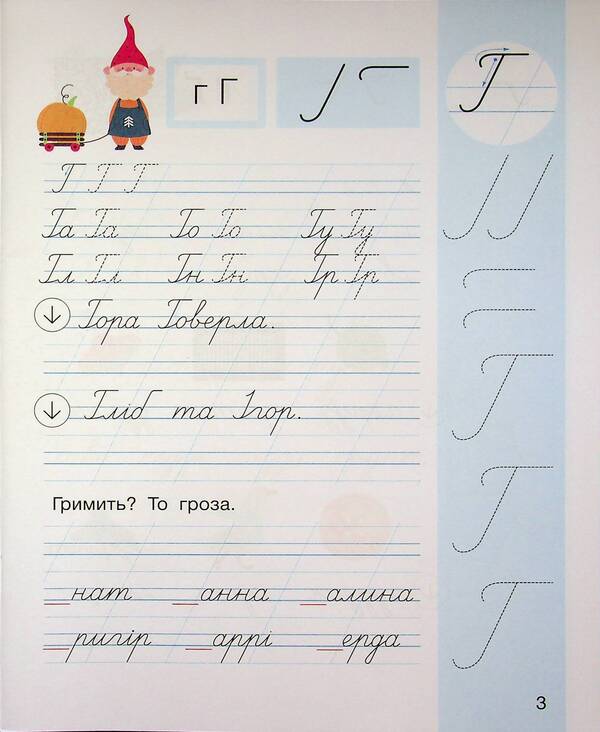 г Г
Г
Г Г Г
Га Га Го Го Гу Гу
Гл Гл Гн Гн Гр Гр
Гора Говерла.
Гліб та Ігор.
Гримить? То гроза.
_нат _анна _алина
_ригір _аррі _ерда
Г
Г
Г
3